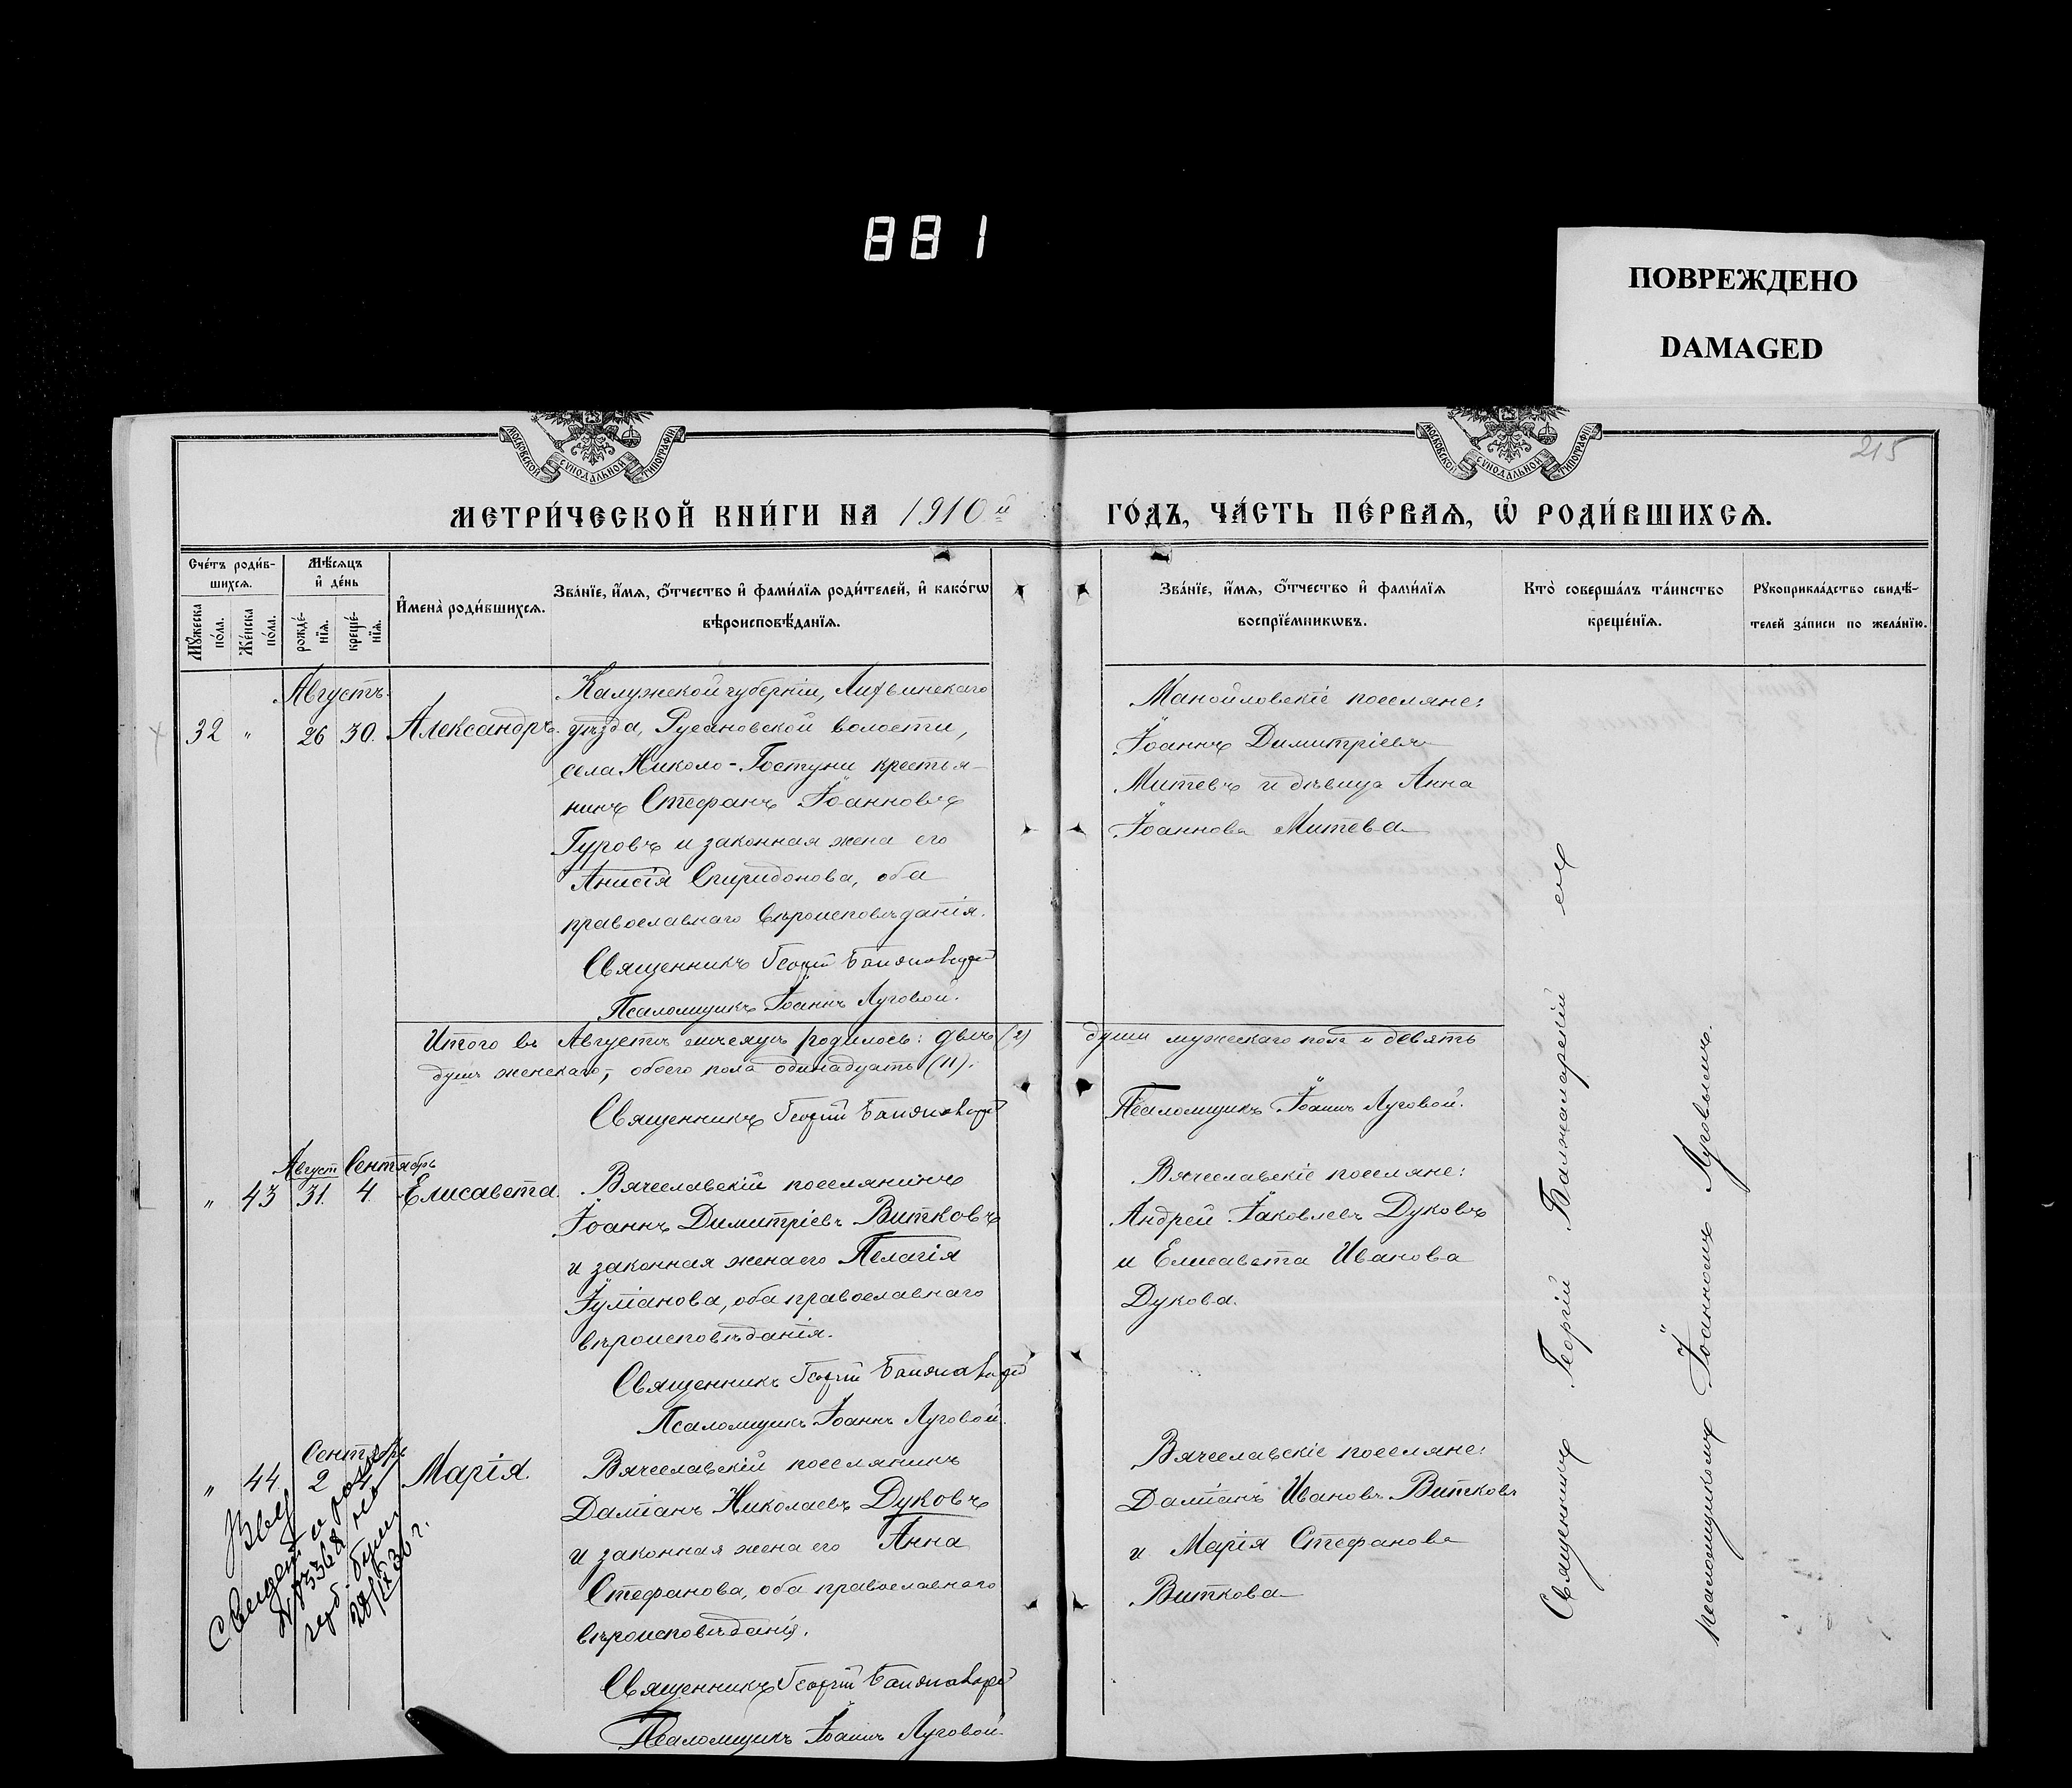 881
ПОВРЕЖДЕНО
DAMAGED
215
МОСКОВСКОЙ СѴНОДАЛЬНОЙ ТИПОГРАФІИ
МОСКОВСКОЙ СѴНОДАЛЬНОЙ ТИПОГРАФІИ
МЕТРИ́ЧЕСКОЙ КНИ́ГИ НА 1910й ГО́ДЪ, ЧА́СТЬ ПЕ́РВАѦ, Ѡ РОДИ́ВШИХСѦ.
Сче́тъ роди́в-
шихсѧ.
Мꙋ́жеска по́ла.
Же́нска по́ла.
Мѣ́сѧцъ
и҆ де́нь
рожде́-
нїѧ.
креще́-
нїѧ.
И҆мена̀ роди́вшихсѧ.
Зва́нїе, и҆́мѧ, ѻ҆́тчество и҆ фами́лїѧ роди́телей, и҆ како́гѡ
вѣроисповѣ́данїѧ.
Зва́нїе, и҆́мѧ, ѻ҆́тчество и҆ фами́лїѧ
воспрїе́мникѡвъ.
Кто̀ соверша́лъ та́инство
креще́нїѧ.
Рꙋкоприкла́дство свидѣ́-
телей за́писи по жела́нїю.
Августъ.
32 " 26 30. Александръ.
Калужской губерніи, Лихвинскаго
уѣзда, Русановской волости,
села Николо-Гостуни крестья-
нинъ Стефанъ Іоанновъ
Гуровъ и законная жена его
Анисія Спиридонова, оба
православнаго вѣроисповѣданія.
Священникъ Георгій
Псаломщикъ Іоаннъ Луговой.
Манойловскіе поселяне:
Іоаннъ Димитріевъ
Митевъ и дѣвица Анна
Іоаннова Митева
Итого въ Августѣ мѣсяцѣ родилось: двѣ (2) души мужескаго пола и девять
душъ женскаго, обоего пола одинадцать (11).
Священникъ Георгій
Псаломщикъ Іоаннъ Луговой.
Август Сентябрь
" 43 31. 4. Елисавета.
Вячеславскій поселянинъ
Іоаннъ Димитріевъ Витковъ
и законная жена его Пелагія
Іуліанова, оба православнаго
вѣроисповѣданія.
Священникъ Георгій
Псаломщикъ Іоаннъ Луговой.
Вячеславскіе поселяне:
Андрей Іаковлевъ Дуковъ
и Елисавета Иванова
Дукова.
Сентябрь
" 44. 2 4 Марія.
Вячеславскій поселянинъ
Даміанъ Николаевъ Дуковъ
и законная жена его Анна
Стефанова, оба православнаго
вѣроисповѣданія.
Священникъ Георгій
Псаломщикъ Іоаннъ Луговой.
Вячеславскіе поселяне:
Даміанъ Ивановъ Витковъ
и Марія Стефанова
Виткова
Священникъ Георгій съ
псаломщикомъ Іоанномъ Луговымъ.